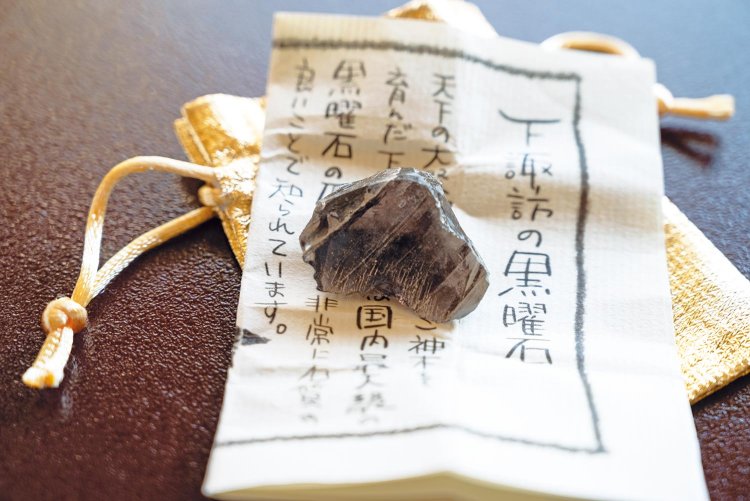 下諏訪の黒曜石
天下の大
ご神木を
育んだ下
は国内最大級の
黒曜石の
非常に
良いことで知られています。